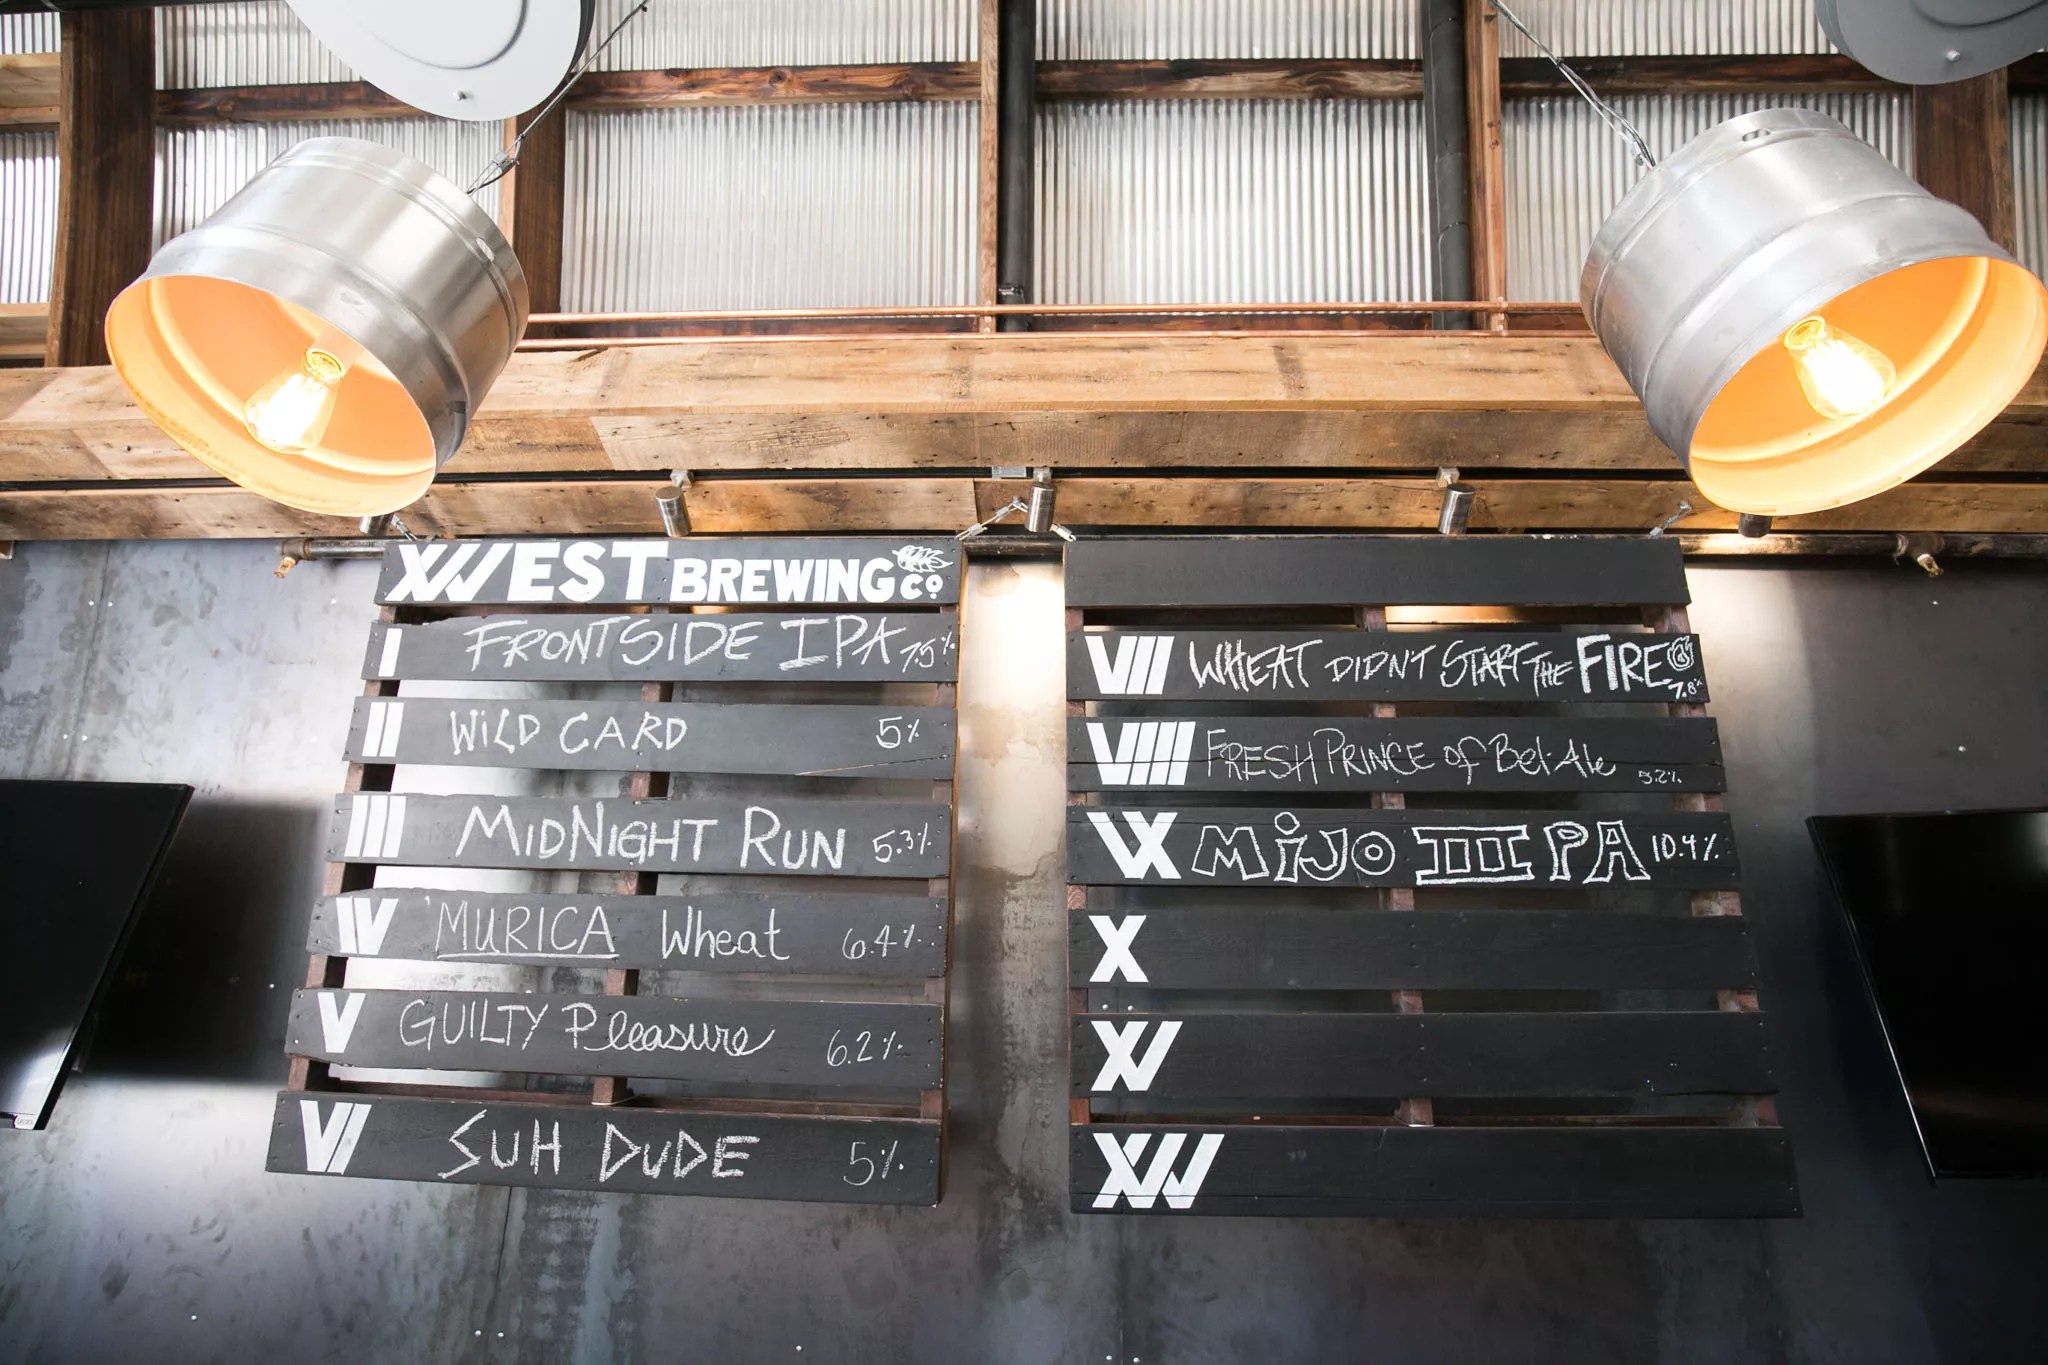 XWEST BREWING CO
I FRONTSIDE IPA 7.5%
II WiLD CARD 5%
III MiDNiGHT RUN 5.3%
IV 'MURICA Wheat 6.4%
V GUILTY Pleasure 6.2%
VI SUH DUDE 5%
VII WHEAT DIDN'T START THE FIRE 7.8%
VIII FRESH PRINCE of Bel-Ale 5.2%
VX MiJO IIIPA 10.4%
X
XV
XVV